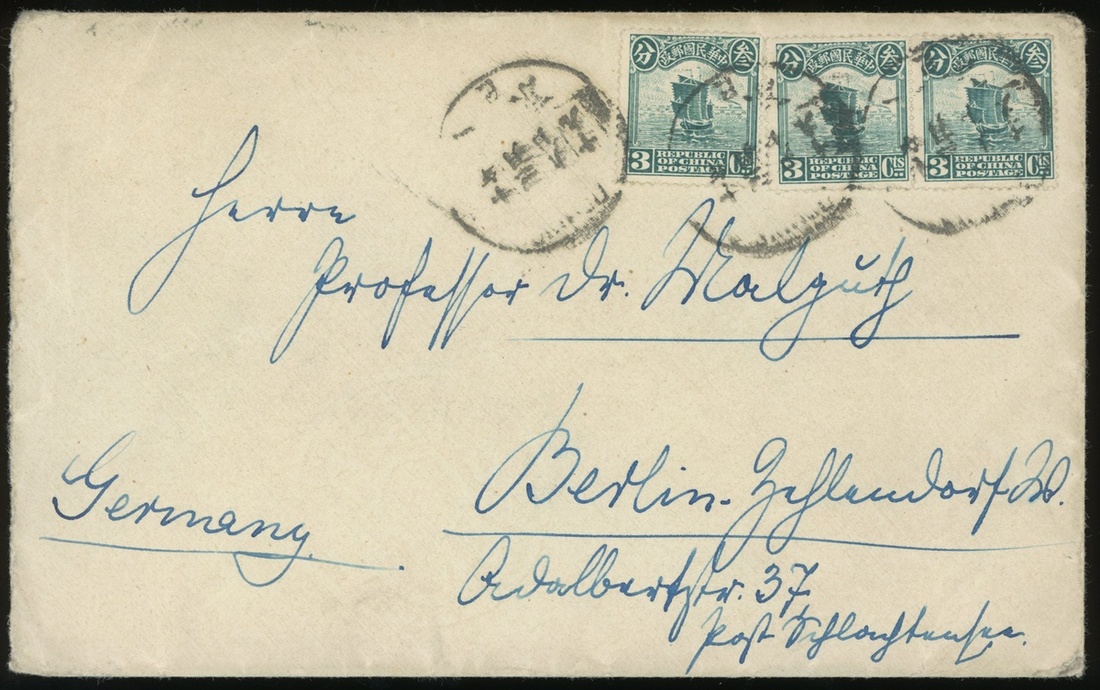 分 中華民國郵政 叁
3 REPUBLIC OF CHINA POSTAGE Cts
分 中華民國郵政 叁
3 REPUBLIC OF CHINA POSTAGE Cts
分 中華民國郵政 叁
3 REPUBLIC OF CHINA POSTAGE Cts
Herrn
Professor Dr. Malguth
Berlin-Zehlendorf-W.
Germany.
Adalbertstr. 37,
Post Schlachtensee.